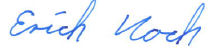 Erich Koch